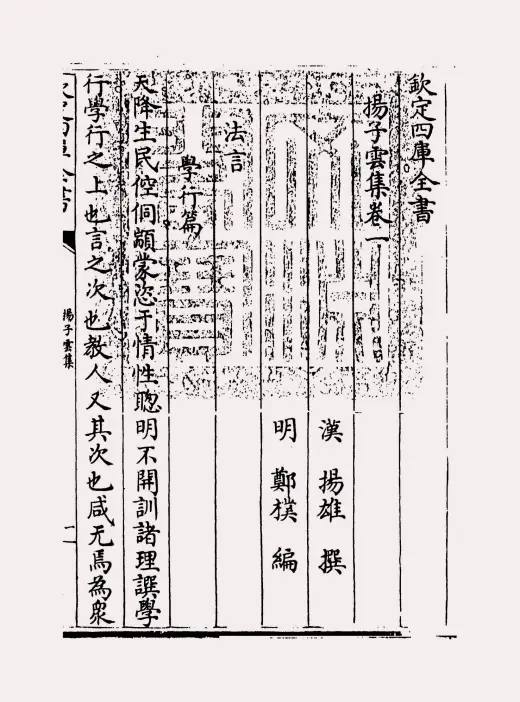 欽定四庫全書
揚子雲集卷一
漢 揚雄 撰
明 鄭樸 編
法言
學行篇
天降生民倥侗顓蒙恣于情性聰明不開訓諸理譔學
行學行之上也言之次也教人又其次也咸无焉為衆
欽定四庫全書
揚子雲集
一